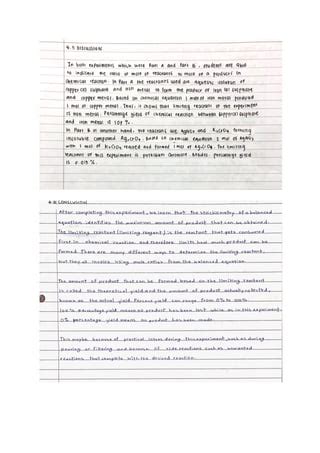 4.7 DISCUSSION
In both experiments which were Part A and Part B, student are able
to indicate the ratio of mole of reactants to mole of a product in
chemical reaction. In Part A the reactants used are aqueous solution of
copper (II) sulphate and iron metal to form the product of iron (II) sulphate
and copper metal. Based on chemical equation 1 mole of iron metal produced
1 mol of copper metal. Thus, it shows that limiting reactant of the experiment
is iron metal. Percentage yield of chemical reaction between copper (II) sulphate
and iron metal is 107 %.
In Part B in another hand, the reactants are AgNO3 and K2CrO4 forming
insoluble compound Ag2CrO4. Based on chemical equation 2 mol of AgNO3
with 1 mol of K2CrO4 reacted and formed 1 mol of Ag2CrO4. The limiting
reactant of this experiment is potassium chromate. Besides, percentage yield
is 0.013 %.
CONCLUSION
After completing this experiment, we learn that the stoichiometry of a balanced
equation identifies the maximum amount of product that can be obtained.
The limiting reactant (limiting reagent) is the reactant that gets consumed
first in chemical reaction and therefore limits how much product can be
formed. There are many different ways to determine the limiting reactant,
but they all involve using mole ratios from the balanced equation.
The amount of product that can be formed based on the limiting reactant
is called the theoretical yield and the amount of product actually collected,
known as the actual yield. Percent yield can range from 0% to 100%.
100% percentage yield means no product has been lost while on in this experiment
0% percentage yield means no product has been made.
This maybe because of practical losses during this experiment such as during
pouring or filtering and because of side reactions such as unwanted
reactions that compete with the desired reaction.